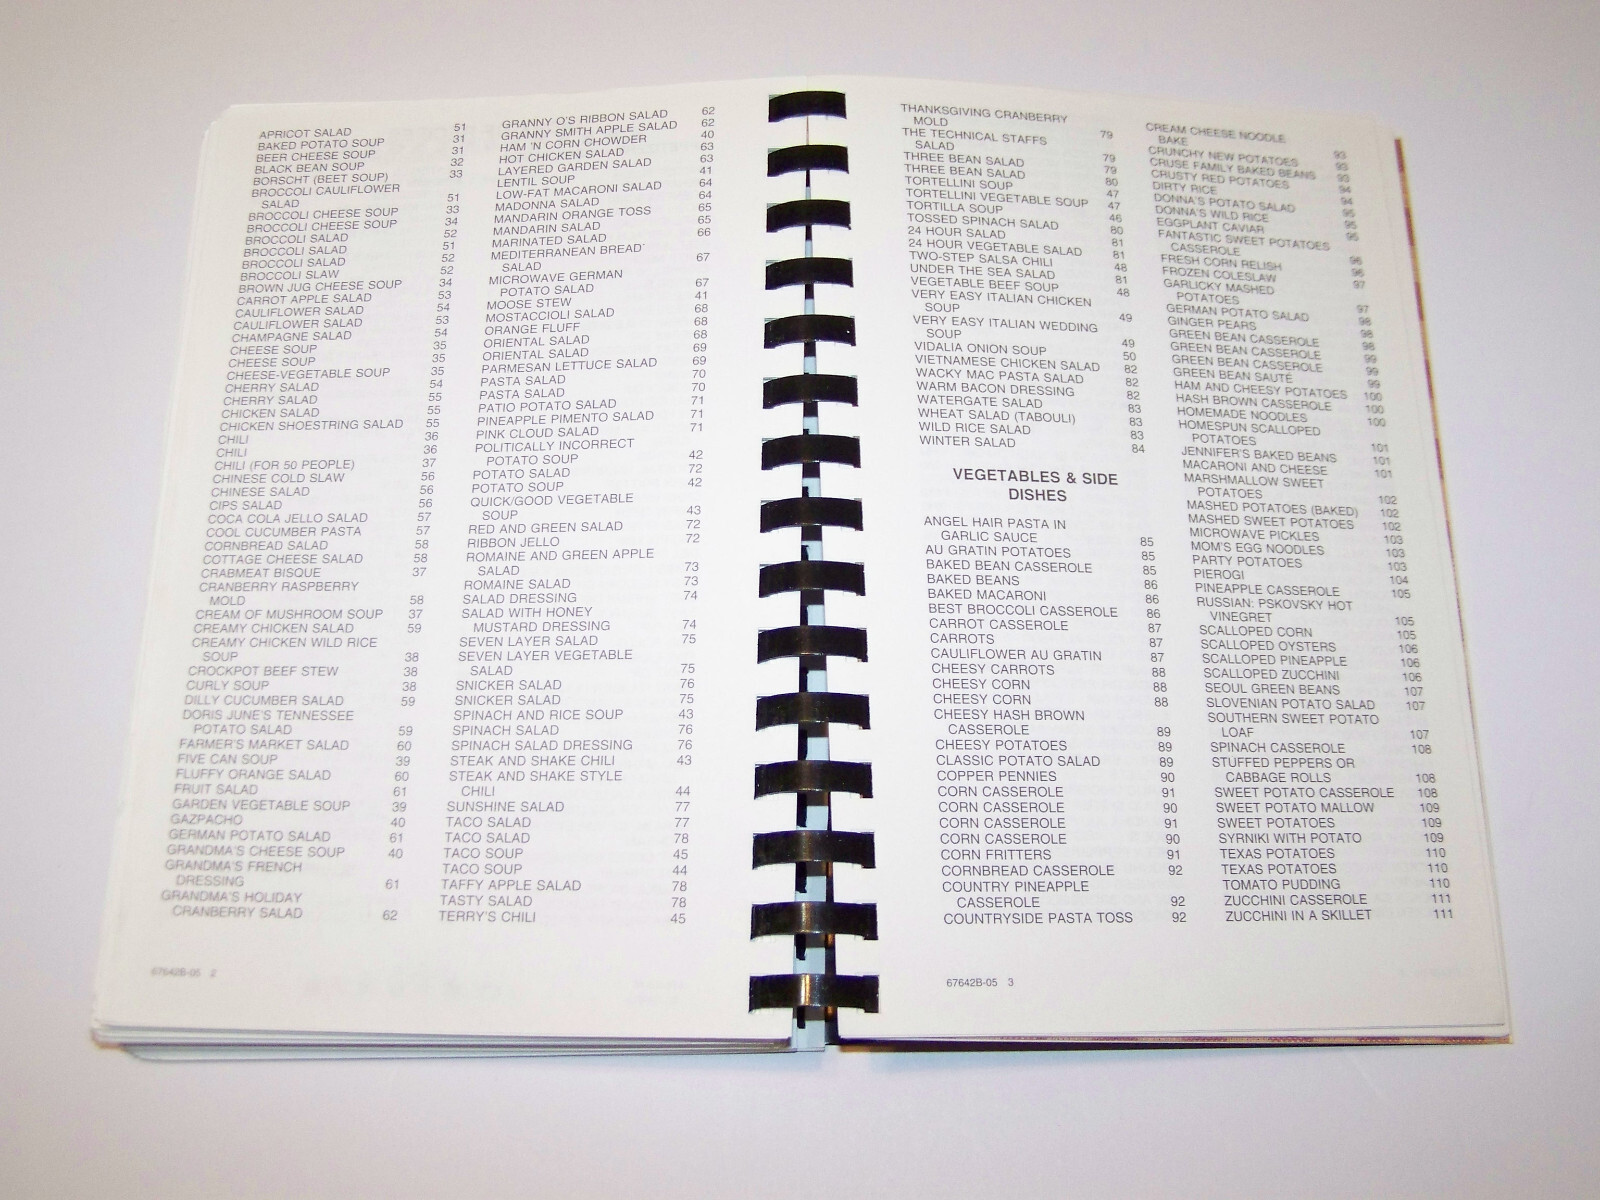 APRICOT SALAD 51
BAKED POTATO SOUP 31
BEER CHEESE SOUP 31
BLACK BEAN SOUP 32
BORSCHT (BEET SOUP) 33
BROCCOLI CAULIFLOWER
SALAD 51
BROCCOLI CHEESE SOUP 33
BROCCOLI CHEESE SOUP 34
BROCCOLI SALAD 52
BROCCOLI SALAD 51
BROCCOLI SALAD 52
BROCCOLI SLAW 52
BROWN JUG CHEESE SOUP 34
CARROT APPLE SALAD 53
CAULIFLOWER SALAD 54
CAULIFLOWER SALAD 53
CHAMPAGNE SALAD 54
CHEESE SOUP 35
CHEESE SOUP 35
CHEESE-VEGETABLE SOUP 35
CHERRY SALAD 54
CHERRY SALAD 55
CHICKEN SALAD 55
CHICKEN SHOESTRING SALAD 55
CHILI 36
CHILI 36
CHILI (FOR 50 PEOPLE) 37
CHINESE COLD SLAW 56
CHINESE SALAD 56
CIPS SALAD 56
COCA COLA JELLO SALAD 57
COOL CUCUMBER PASTA 57
CORNBREAD SALAD 58
COTTAGE CHEESE SALAD 58
CRABMEAT BISQUE 37
CRANBERRY RASPBERRY
MOLD 58
CREAM OF MUSHROOM SOUP 37
CREAMY CHICKEN SALAD 59
CREAMY CHICKEN WILD RICE
SOUP 38
CROCKPOT BEEF STEW 38
CURLY SOUP 38
DILLY CUCUMBER SALAD 59
DORIS JUNE'S TENNESSEE
POTATO SALAD 59
FARMER'S MARKET SALAD 60
FIVE CAN SOUP 39
FLUFFY ORANGE SALAD 60
FRUIT SALAD 61
GARDEN VEGETABLE SOUP 39
GAZPACHO 40
GERMAN POTATO SALAD 61
GRANDMA'S CHEESE SOUP 40
GRANDMA'S FRENCH
DRESSING 61
GRANDMA'S HOLIDAY
CRANBERRY SALAD 62
GRANNY O'S RIBBON SALAD 62
GRANNY SMITH APPLE SALAD 62
HAM 'N CORN CHOWDER 40
HOT CHICKEN SALAD 63
LAYERED GARDEN SALAD 63
LENTIL SOUP 41
LOW-FAT MACARONI SALAD 64
MADONNA SALAD 64
MANDARIN ORANGE TOSS 65
MANDARIN SALAD 65
MARINATED SALAD 66
MEDITERRANEAN BREAD
SALAD 67
MICROWAVE GERMAN
POTATO SALAD 67
MOOSE STEW 41
MOSTACCIOLI SALAD 68
ORANGE FLUFF 68
ORIENTAL SALAD 68
ORIENTAL SALAD 69
PARMESAN LETTUCE SALAD 69
PASTA SALAD 70
PASTA SALAD 70
PATIO POTATO SALAD 71
PINEAPPLE PIMENTO SALAD 71
PINK CLOUD SALAD 71
POLITICALLY INCORRECT
POTATO SOUP 42
POTATO SALAD 72
POTATO SOUP 42
QUICK/GOOD VEGETABLE
SOUP 43
RED AND GREEN SALAD 72
RIBBON JELLO 72
ROMAINE AND GREEN APPLE
SALAD 73
ROMAINE SALAD 73
SALAD DRESSING 74
SALAD WITH HONEY
MUSTARD DRESSING 74
SEVEN LAYER SALAD 75
SEVEN LAYER VEGETABLE
SALAD 75
SNICKER SALAD 76
SNICKER SALAD 75
SPINACH AND RICE SOUP 43
SPINACH SALAD 76
SPINACH SALAD DRESSING 76
STEAK AND SHAKE CHILI 43
STEAK AND SHAKE STYLE
CHILI 44
SUNSHINE SALAD 77
TACO SALAD 77
TACO SALAD 78
TACO SOUP 45
TACO SOUP 44
TAFFY APPLE SALAD 78
TASTY SALAD 78
TERRY'S CHILI 45
67642B-05 2
THANKSGIVING CRANBERRY
MOLD 79
THE TECHNICAL STAFFS
SALAD 79
THREE BEAN SALAD 79
THREE BEAN SALAD 80
TORTELLINI SOUP 47
TORTELLINI VEGETABLE SOUP 47
TORTILLA SOUP 46
TOSSED SPINACH SALAD 80
24 HOUR SALAD 81
24 HOUR VEGETABLE SALAD 81
TWO-STEP SALSA CHILI 48
UNDER THE SEA SALAD 81
VEGETABLE BEEF SOUP 48
VERY EASY ITALIAN CHICKEN
SOUP 49
VERY EASY ITALIAN WEDDING
SOUP 49
VIDALIA ONION SOUP 50
VIETNAMESE CHICKEN SALAD 82
WACKY MAC PASTA SALAD 82
WARM BACON DRESSING 82
WATERGATE SALAD 83
WHEAT SALAD (TABOULI) 83
WILD RICE SALAD 83
WINTER SALAD 84
VEGETABLES & SIDE
DISHES
ANGEL HAIR PASTA IN
GARLIC SAUCE 85
AU GRATIN POTATOES 85
BAKED BEAN CASSEROLE 85
BAKED BEANS 86
BAKED MACARONI 86
BEST BROCCOLI CASSEROLE 86
CARROT CASSEROLE 87
CARROTS 87
CAULIFLOWER AU GRATIN 87
CHEESY CARROTS 88
CHEESY CORN 88
CHEESY CORN 88
CHEESY HASH BROWN
CASSEROLE 89
CHEESY POTATOES 89
CLASSIC POTATO SALAD 89
COPPER PENNIES 90
CORN CASSEROLE 91
CORN CASSEROLE 90
CORN CASSEROLE 91
CORN CASSEROLE 90
CORN FRITTERS 91
CORNBREAD CASSEROLE 92
COUNTRY PINEAPPLE
CASSEROLE 92
COUNTRYSIDE PASTA TOSS 92
CREAM CHEESE NOODLE
BAKE 93
CRUNCHY NEW POTATOES 93
CRUSE FAMILY BAKED BEANS 93
CRUSTY RED POTATOES 94
DIRTY RICE 94
DONNA'S POTATO SALAD 95
DONNA'S WILD RICE 95
EGGPLANT CAVIAR 95
FANTASTIC SWEET POTATOES
CASSEROLE 96
FRESH CORN RELISH 96
FROZEN COLESLAW 97
GARLICKY MASHED
POTATOES 97
GERMAN POTATO SALAD 98
GINGER PEARS 98
GREEN BEAN CASSEROLE 98
GREEN BEAN CASSEROLE 99
GREEN BEAN CASSEROLE 99
GREEN BEAN SAUTE 99
HAM AND CHEESY POTATOES 100
HASH BROWN CASSEROLE 100
HOMEMADE NOODLES 100
HOMESPUN SCALLOPED
POTATOES 101
JENNIFER'S BAKED BEANS 101
MACARONI AND CHEESE 101
MARSHMALLOW SWEET
POTATOES 102
MASHED POTATOES (BAKED) 102
MASHED SWEET POTATOES 102
MICROWAVE PICKLES 103
MOM'S EGG NOODLES 103
PARTY POTATOES 103
PIEROGI 104
PINEAPPLE CASSEROLE 105
RUSSIAN: PSKOVSKY HOT
VINEGRET 105
SCALLOPED CORN 105
SCALLOPED OYSTERS 106
SCALLOPED PINEAPPLE 106
SCALLOPED ZUCCHINI 106
SEOUL GREEN BEANS 107
SLOVENIAN POTATO SALAD 107
SOUTHERN SWEET POTATO
LOAF 107
SPINACH CASSEROLE 108
STUFFED PEPPERS OR
CABBAGE ROLLS 108
SWEET POTATO CASSEROLE 108
SWEET POTATO MALLOW 109
SWEET POTATOES 109
SYRNIKI WITH POTATO 109
TEXAS POTATOES 110
TEXAS POTATOES 110
TOMATO PUDDING 110
ZUCCHINI CASSEROLE 111
ZUCCHINI IN A SKILLET 111
67642B-05 3